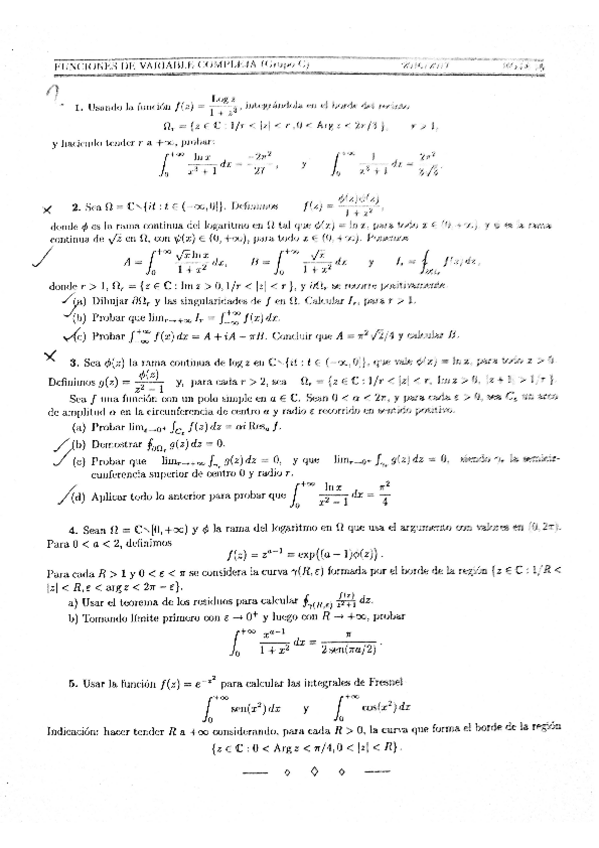 FUNCIONES DE VARIABLE COMPLEJA (Grupo C)
1. Usando la función f(z) = Log z / 1 + z³, integrándola en el borde del recinto
Ωᵣ = {z ∈ ℂ : 1/r < |z| < r, 0 < Arg z < 2π/3}, r > 1,
y haciendo tender r a +∞, probar:
∫₀^{+∞} ln x / x³ + 1 dx = −2π² / 27, y ∫₀^{+∞} 1 / x³ + 1 dx =
2. Sea Ω = ℂ∖{it : t ∈ (−∞, 0]}. Definimos f(z) = φ(z)ψ(z) / 1 + z²,
donde φ es la rama continua del logaritmo en Ω tal que φ(x) = ln x, para todo x ∈ (0, +∞) y ψ es la rama
continua de √z en Ω, con ψ(x) ∈ (0, +∞), para todo x ∈ (0, +∞). Ponemos
A = ∫₀^{+∞} √x ln x / 1 + x² dx, B = ∫₀^{+∞} √x / 1 + x² dx y Iᵣ = ∮_{∂Ωᵣ} f(z) dz,
donde r > 1, Ωᵣ = {z ∈ ℂ : Im z > 0, 1/r < |z| < r}, y ∂Ωᵣ se recorre positivamente.
(a) Dibujar ∂Ωᵣ y las singularidades de f en Ω. Calcular Iᵣ, para r > 1.
(b) Probar que lim_{r→+∞} Iᵣ = ∫_{−∞}^{+∞} f(x) dx.
(c) Probar ∫_{−∞}^{+∞} f(x) dx = A + iA − πB. Concluir que A = π²√2/4 y calcular B.
3. Sea φ(z) la rama continua de log z en ℂ∖{it : t ∈ (−∞, 0]}, que vale φ(x) = ln x, para todo x > 0.
Definimos g(z) = φ(z) / z² − 1 y, para cada r > 2, sea Ωᵣ = {z ∈ ℂ : 1/r < |z| < r, Im z > 0, |z + 1| > 1/r}.
Sea f una función con un polo simple en a ∈ ℂ. Sean 0 < α < 2π, y para cada ε > 0, sea C_ε un arco
de amplitud α en la circunferencia de centro a y radio ε recorrido en sentido positivo.
(a) Probar lim_{ε→0⁺} ∫_{C_ε} f(z) dz = αi Res_a f.
(b) Demostrar ∮_{∂Ωᵣ} g(z) dz = 0.
(c) Probar que lim_{r→+∞} ∫_{γᵣ} g(z) dz = 0, y que lim_{r→0⁺} ∫_{γᵣ} g(z) dz = 0, siendo γᵣ la semicir-
cunferencia superior de centro 0 y radio r.
(d) Aplicar todo lo anterior para probar que ∫₀^{+∞} ln x / x² − 1 dx = π² / 4
4. Sean Ω = ℂ∖[0, +∞) y φ la rama del logaritmo en Ω que usa el argumento con valores en (0, 2π).
Para 0 < a < 2, definimos
f(z) = z^{a−1} = exp((a − 1)φ(z)).
Para cada R > 1 y 0 < ε < π se considera la curva γ(R, ε) formada por el borde de la región {z ∈ ℂ : 1/R <
|z| < R, ε < arg z < 2π − ε}.
a) Usar el teorema de los residuos para calcular ∮_{γ(R,ε)} f(z) / z²+1 dz.
b) Tomando límite primero con ε → 0⁺ y luego con R → +∞, probar
∫₀^{+∞} x^{a−1} / 1 + x² dx = π / 2 sen(πa/2).
5. Usar la función f(z) = e^{−z²} para calcular las integrales de Fresnel
∫₀^{+∞} sen(x²) dx y ∫₀^{+∞} cos(x²) dx
Indicación: hacer tender R a +∞ considerando, para cada R > 0, la curva que forma el borde de la región
{z ∈ ℂ : 0 < Arg z < π/4, 0 < |z| < R}.